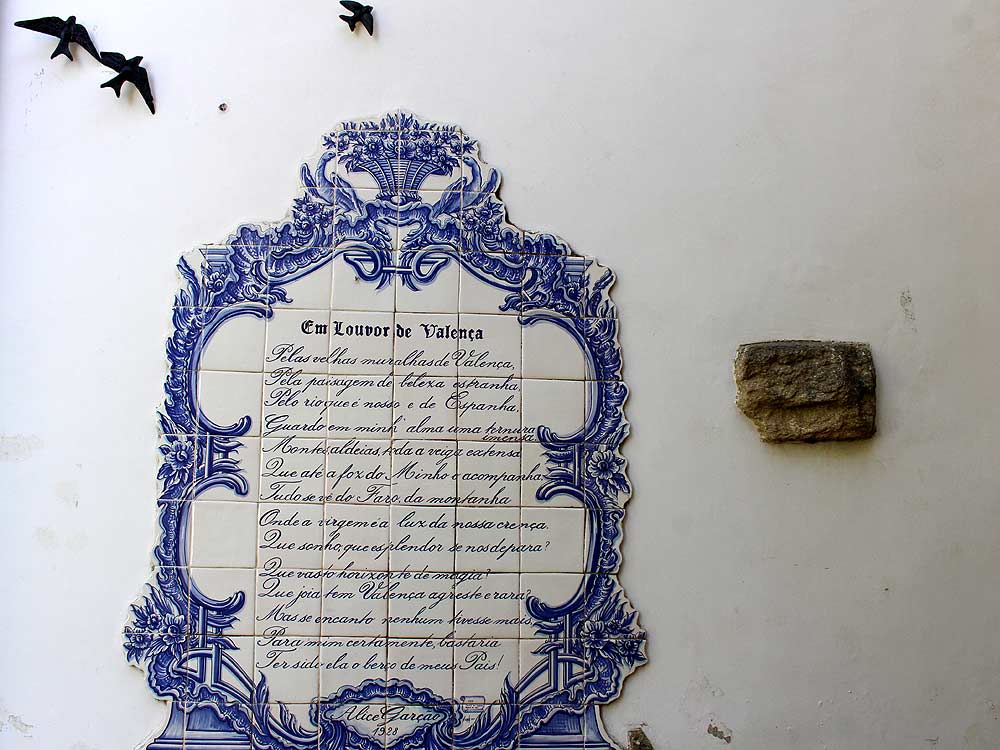 Em Louvor de Valença
Pelas velhas muralhas de Valença,
Pela paisagem de beleza estranha,
Pelo rio que é nosso e de Espanha,
Guardo em minh'alma uma ternura
imensa
Montes, aldeias, toda a veiga extensa
Que até a foz do Minho o acompanha.
Tudo se vê do Faro, da montanha
Onde a virgem é a luz da nossa crença.
Que sonho, que esplendor se nos depara?
Que vasto horizonte de magia?
Que joia tem Valença agreste e rara?
Mas se encanto nenhum tivesse mais,
Para mim certamente, bastaria
Ter sido ela o berço de meus Pais!
Alice Garção
1928